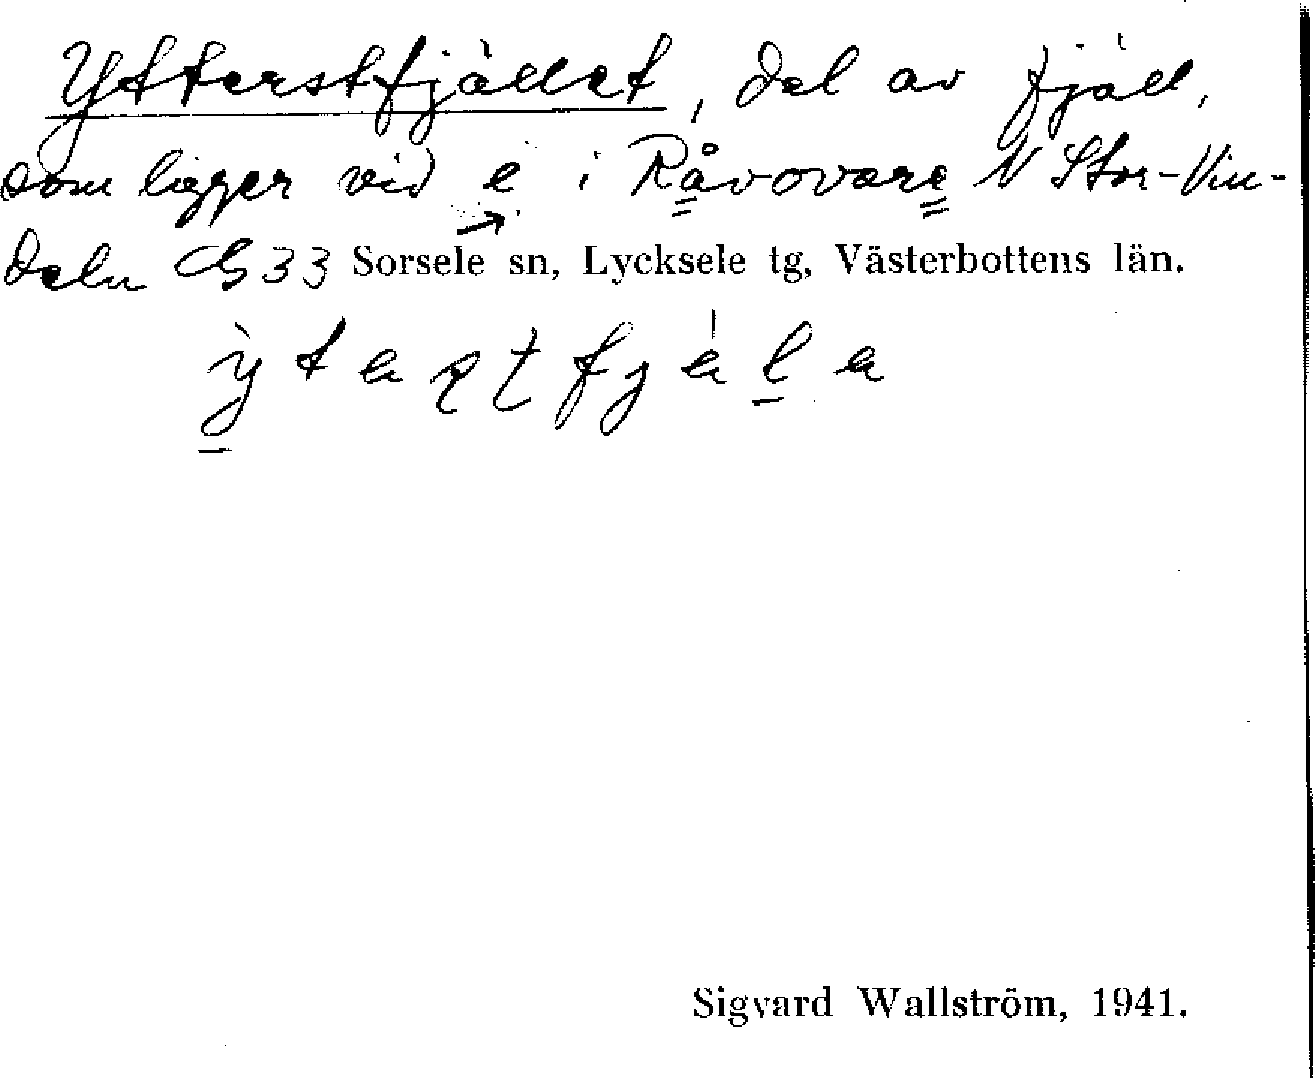 Ytterstfjället, del av fjäll,
som ligger vid e i Råvovare N Stor-Vin-
deln GB 33 Sorsele sn, Lycksele tg, Västerbottens län.
Sigvard Wallström, 1941.